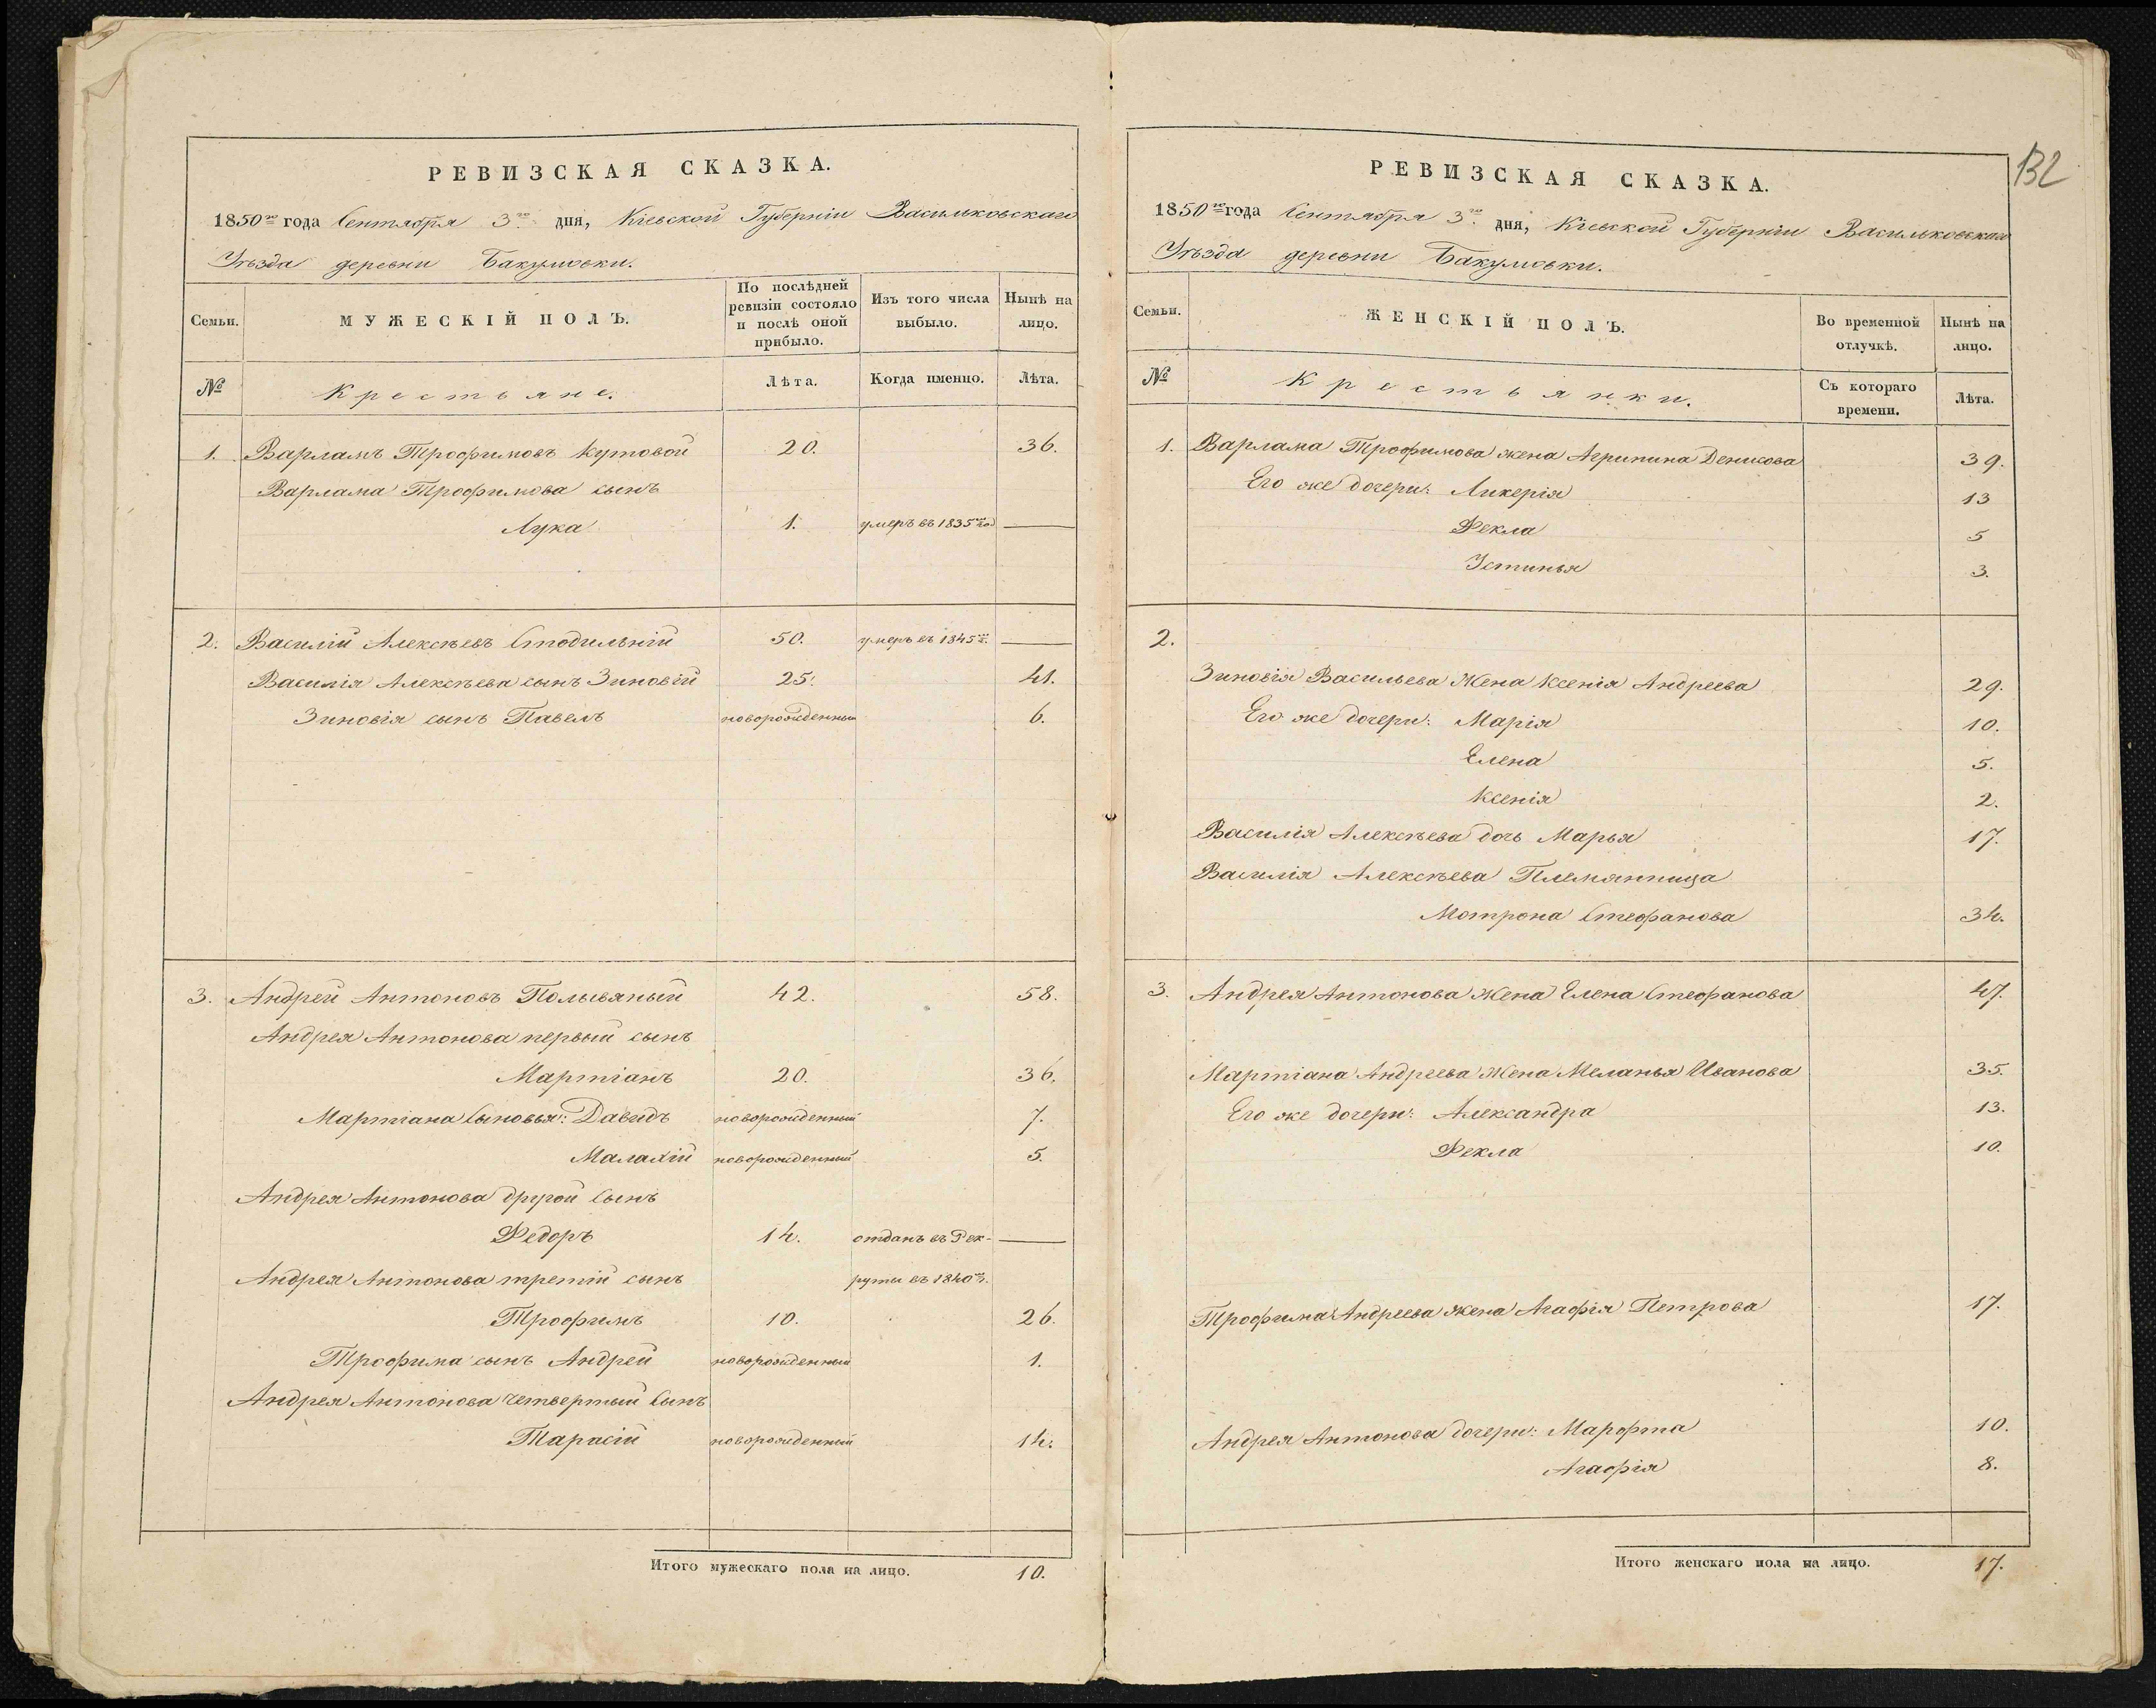 РЕВИЗСКАЯ СКАЗКА.
1850го года Сентября 3го дня, Кіевской Губерніи Васильковскаго
Уѣзда деревни Бакумовки.
Семьи.
МУЖЕСКІЙ ПОЛЪ.
По послѣдней ревизіи состояло и послѣ оной прибыло.
Изъ того числа выбыло.
Нынѣ на лицо.
№ Крестьяне. Лѣта. Когда именно. Лѣта.
1. Варламъ Трофимовъ Кутовой 20. 36.
Варлама Трофимова сынъ
Лука 1. умеръ въ 1835мъ год —
2. Василій Алексѣевъ Стодильній 50. умеръ въ 1845мъ г. —
Василія Алексѣева сынъ Зиновій 25. 41.
Зиновія сынъ Павелъ новорожденный 6.
3. Андрей Антоновъ Полывяный 42. 58.
Андрея Антонова первый сынъ
Мартіанъ 20. 36.
Мартіана Сыновья: Давидъ новорожденный 7.
Малахій новорожденный 5.
Андрея Антонова другой сынъ
Федоръ 14. отданъ въ Рек- —
Андрея Антонова третій сынъ руты въ 1840мъ г.
Трофимъ 10. 26.
Трофима сынъ Андрей новорожденный 1.
Андрея Антонова четвертый Сынъ
Тарасій новорожденный 14.
Итого мужескаго пола на лицо. 10.
132
РЕВИЗСКАЯ СКАЗКА.
1850го года Сентября 3го дня, Кіевской Губерніи Васильковскаго
Уѣзда деревни Бакумовки.
Семьи.
ЖЕНСКІЙ ПОЛЪ.
Во временной отлучкѣ.
Нынѣ на лицо.
№ Крестьянки. Съ котораго времени. Лѣта.
1. Варлама Трофимова жена Агрипина Денисова 39.
Его же дочери: Ликерія 13
Фекла 5
Устинья 3.
2.
Зиновія Васильева Жена Ксенія Андреева 29.
Его же дочери: Марія 10.
Елена 5.
Ксенія 2.
Василія Алексѣева дочь Марья 17.
Василія Алексѣева Племянница
Мотрона Стефанова 34.
3. Андрея Антонова Жена Елена Стефанова 47.
Мартіана Андреева Жена Меланья Иванова 35.
Его же дочери: Александра 13.
Фекла 10.
Трофима Андреева жена Агафія Петрова 17.
Андрея Антонова дочери: Марофта 10.
Агафія 8.
Итого женскаго пола на лицо. 17.